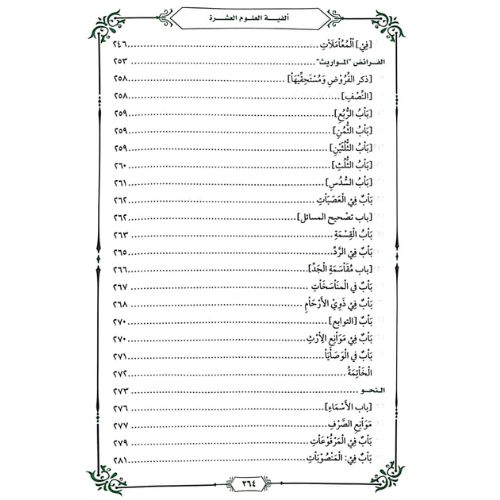 ألفية العلوم العشرة
[فِيْ] الْمُعَامَلَاتِ ٢٤٦
الفرائض "المواريث" ٢٥٣
[ذكر الفُرُوْضِ وَمُسْتَحِقِّيْهَا] ٢٥٨
[النِّصْفِ] ٢٥٨
[بَابُ الرُّبُعِ] ٢٥٩
[بَابُ الثُّمُنِ] ٢٥٩
[بَابُ الثُّلُثَيْنِ] ٢٥٩
[بَابُ الثُّلُثِ] ٢٦٠
[بَابُ السُّدُسِ] ٢٦١
بَابٌ فِيْ الْعَصَبَاتِ ٢٦٢
[باب تصحيح المسائل] ٢٦٢
بَابُ الْقِسْمَةِ ٢٦٣
بَابٌ فِيْ الرَّدِّ ٢٦٥
[باب مُقَاسَمَةِ الْجَدِّ] ٢٦٦
بَابٌ فِي الْمنَاسَخَاتِ ٢٦٧
بَابٌ فِيْ ذَوِيْ الْأَرْحَامِ ٢٦٨
بَابُ [التوابع] ٢٧٠
بَابٌ فِيْ مَوَانِعِ الْإِرْثِ ٢٧٠
بَابٌ فِيْ الْوَصَايَا ٢٧١
الْخَاتِمَةُ ٢٧٢
النحو ٢٧٣
[باب الأَسْمَاءِ] ٢٧٦
مَوَانِعِ الصَّرْفِ ٢٧٧
بَابٌ فِيْ الْمَرْفُوْعَاتِ ٢٧٩
بَابٌ فِيْ: الْمَنْصُوْبَاتِ ٢٨١
٣٦٤